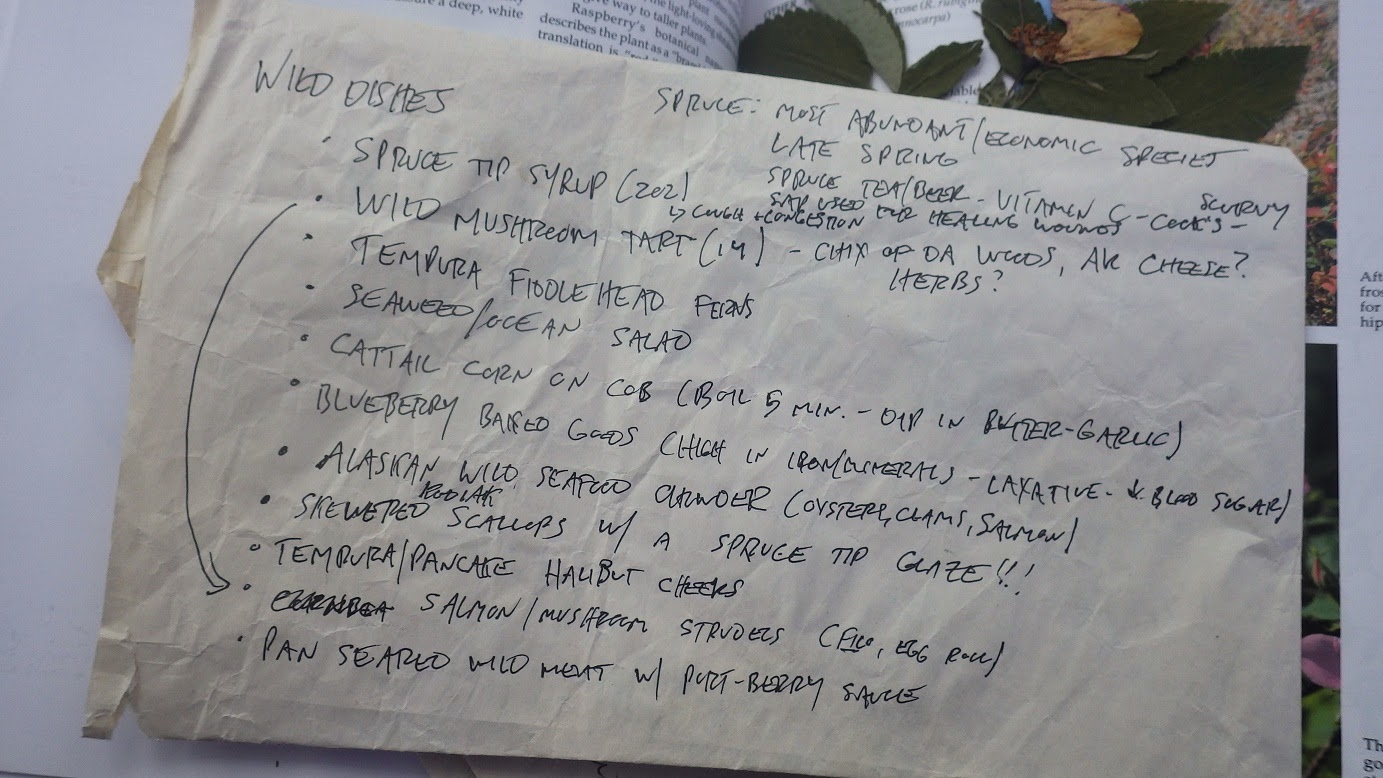 re a deep, white
give way to taller plants.
Raspberry's botanical
describes the plant as a "bram
translation is
the light-loving
OTHER
rose (R. rubigin
nnocarpa)
WILD DISHES
SPRUCE: MOST ABUNDANT/ECONOMIC SPECIES
LATE SPRING
SPRUCE TEA/BEER - VITAMIN C - SCURVY
SAP USED FOR HEALING WOUNDS - COOK'S -
↳ COUGH + CONGESTION
• SPRUCE TIP SYRUP (202)
• WILD MUSHROOM TART (14) - CHIX OF DA WOODS, AK CHEESE?
HERBS?
• TEMPURA FIDDLEHEAD FERNS
• SEAWEED/OCEAN SALAD
• CATTAIL CORN ON COB (BOIL 5 MIN. - DIP IN BUTTER-GARLIC)
• BLUEBERRY BAKED GOODS (HIGH IN IRON/MINERALS) - LAXATIVE - ↓ BLOOD SUGAR)
• ALASKAN WILD SEAFOOD CHOWDER (OYSTERS, CLAMS, SALMON)
KODIAK
• SKEWERED SCALLOPS W/ A SPRUCE TIP GLAZE!!!
• TEMPURA/PANCAKE HALIBUT CHEEKS
• SALMON/MUSHROOM STRUDELS (FILO, EGG ROLL)
• PAN SEARED WILD MEAT W/ PORT-BERRY SAUCE
Aft
fros
for
hip
Th
go